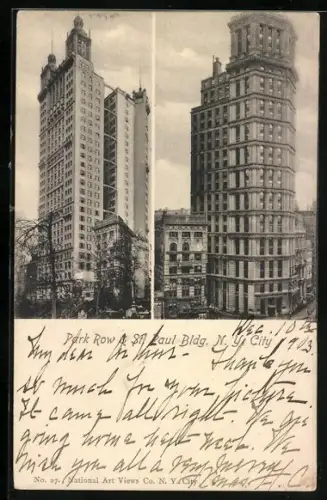 Park Row & St. Paul Bldg. N. Y. City
Dec. 10th
1903.
My dear Arthur:— Thank you
so much for your picture.
It came all right. We are
going home next week. We
wish you all a very merry
No. 27. National Art Views Co. N. Y. City